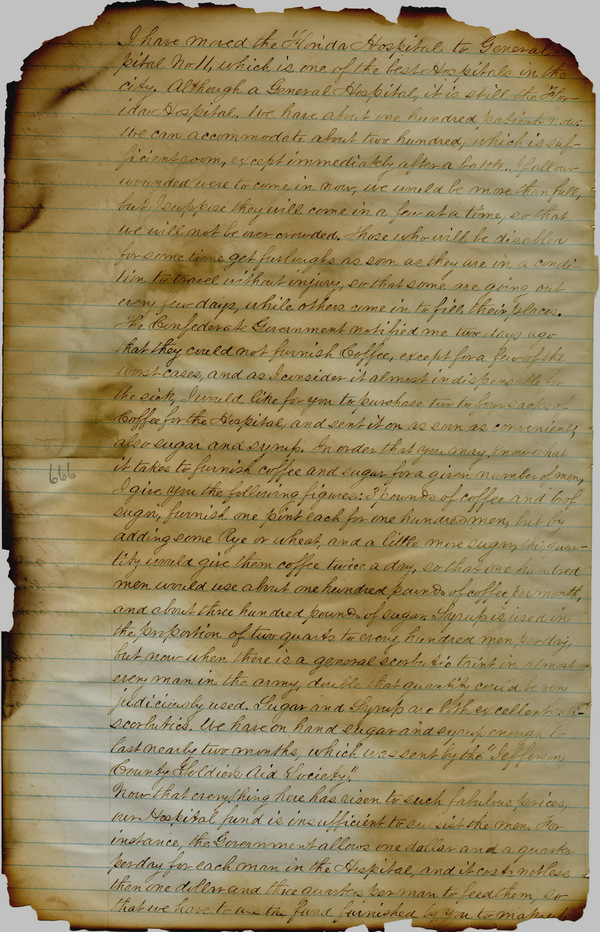 I have moved the Florida Hospital to General Hos-
pital No 11, which is one of the best Hospitals in the
city. Although a General Hospital, it is still the Flor-
ida Hospital. We have about one hundred patients now.
We can accommodate about two hundred, which is suf-
ficient room, except immediately after a battle. If all our
wounded were to come in now, we would be more than full,
but I suppose they will come in a few at a time, so that
we will not be over crowded. Those who will be disabled
for some time get furloughs as soon as they are in a condi-
tion to travel without injury, so that some are going out
every few days, while others come in to fill their places.
The Confederate Government notified me two days ago
that they could not furnish Coffee, except for a few of the
worst cases, and as I consider it almost indispensible for
the sick, I would like for you to purchase two to four sacks of
Coffee for the Hospital, and sent it on as soon as convenient;
also sugar and syrup. In order that you may know what
it takes to furnish coffee and sugar for a given number of men,
666
I give you the following figures: 3 pounds of coffee and 6 of
sugar, furnish one pint each for one hundred men, but by
adding some Rye or wheat, and a little more sugar, this quan-
tity would give them coffee twice a day, so that one hundred
men would use about one hundred pounds of coffee per month,
and about three hundred pounds of sugar. Syrup is used in
the proportion of two quarts to every hundred men per day,
but now when there is a general scorbutic taint in almost
every man in the army, double that quantity could be very
judiciously used. Sugar and Syrup are both excellent anti-
scorbutics. We have on hand sugar and syrup enough to
last nearly two months, which was sent by the "Jefferson
County Soldiers Aid Society".
Now that everything here has risen to such fabulous prices,
our Hospital fund is insufficient to subsist the men. For
instance, the Government allows one dollar and a quarter
per day for each man in the Hospital, and it costs not less
than one dollar and three quarters per man to feed them, so
that we have to use the fund furnished by you to make